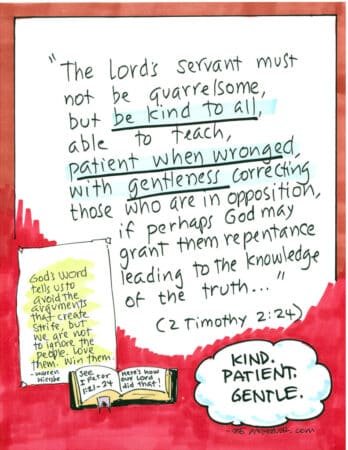 "The Lord's servant must
not be quarrelsome,
but be kind to all,
able to teach,
patient when wronged,
with gentleness correcting
those who are in opposition,
if perhaps God may
grant them repentance
leading to the knowledge
of the truth..."
(2 Timothy 2:24)
God's Word
tells us to
avoid the
arguments
that create
strife, but
we are not
to ignore the
people. Love
them. Win them.
-Warren
Wiersbe
See
I Peter
1:21-24
Here's how
our Lord
did that!
KIND.
PATIENT.
GENTLE.
.com